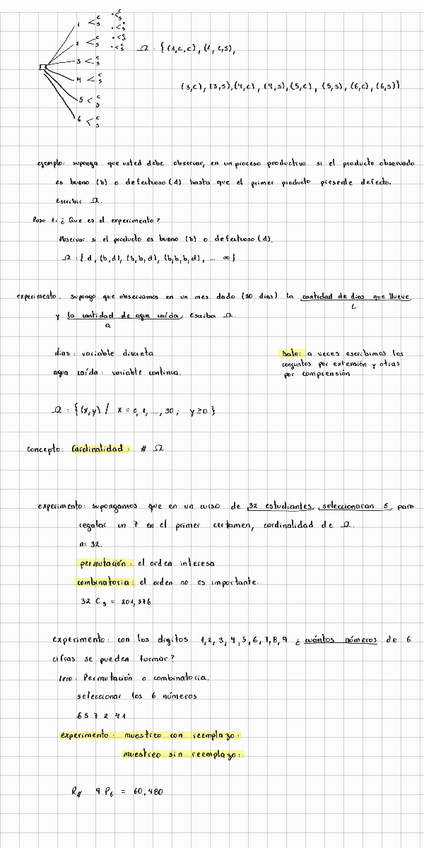 1 < c s
2 < c s
3 < c s
4 < c s
5 < c s
6 < c s
Ω = { (1,c,c), (1,c,s),
(3,c), (3,s), (4,c), (4,s), (5,c), (5,s), (6,c), (6,s) }
ejemplo: suponga que usted debe observar, en un proceso productivo si el producto observado
es bueno (b) o defectuoso (d) hasta que el primer producto presente defecto.
escribir Ω.
Paso 1: ¿ Que es el experimento?
Observar si el producto es bueno (b) o defectuoso (d).
Ω : { d, (b,d), (b,b,d), (b,b,b,d), ... ∞ }
experimento: supongo que observamos en un mes dado (30 dias) la cantidad de dias que llueve
y la cantidad de agua caída, escriba Ω.
dias: variable discreta
agua caída: variable continua.
Dato: a veces escribimos los
conjuntos por extensión y otras
por comprensión
Ω : { (x,y) / x = 0, 1, ..., 30 ; y ≥ 0 }
concepto: Cardinalidad: # Ω
experimento: supongamos que en un curso de 32 estudiantes, seleccionaran 5, para
regalar un 7 en el primer certamen, cardinalidad de Ω.
n: 32.
permutación: el orden interesa
combinatoria: el orden no es importante.
32 C 5 = 201,376
experimento: con los digitos 1,2,3,4,5,6,7,8,9 ¿ cuántos números de 6
cifras se pueden formar?
Permutación o combinatoria.
seleccionar los 6 números
6 5 7 2 4 1
experimento: muestreo con reemplazo:
muestreo sin reemplazo:
R// 9 P6 = 60,480